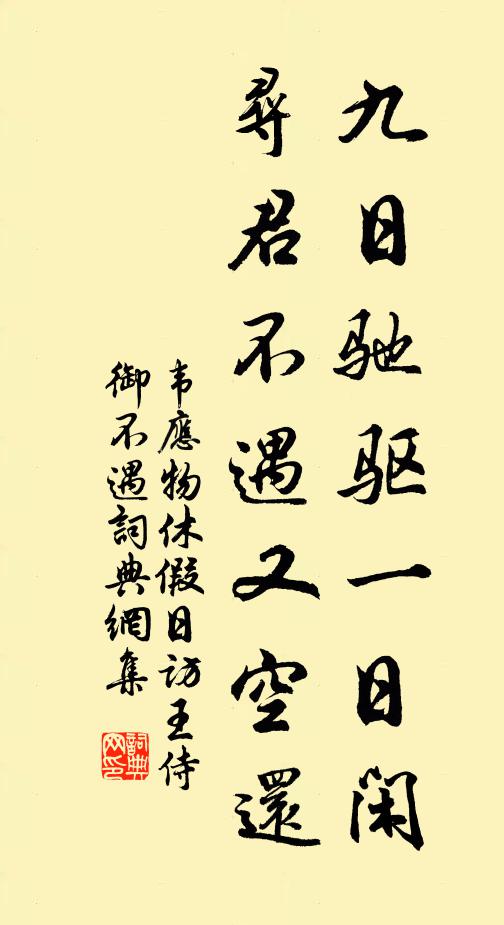 九日驰驱一日闲
尋君不遇又空還
韦應物休假日访王侍
御不遇詞典網集
詞典
网印